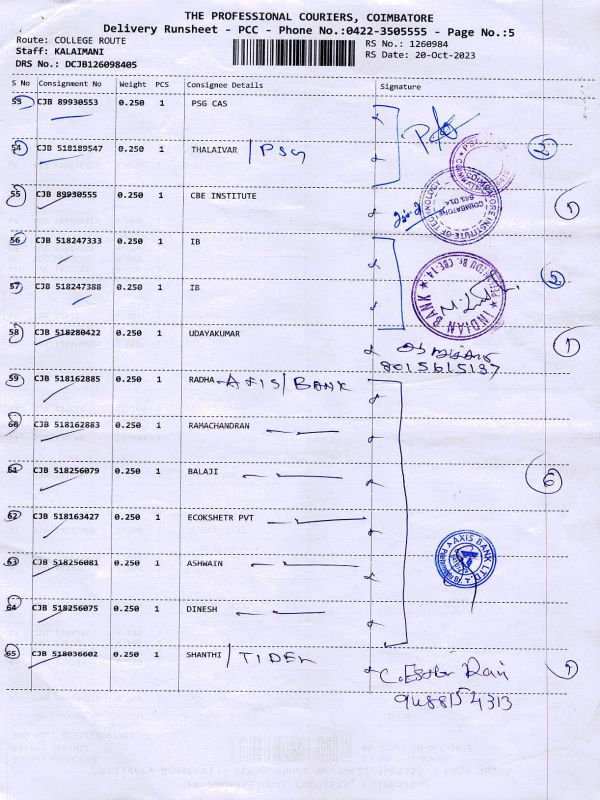 THE PROFESSIONAL COURIERS, COIMBATORE
Delivery Runsheet - PCC - Phone No.:0422-3505555 - Page No.:5
Route: COLLEGE ROUTE
RS No.: 1260984
Staff: KALAIMANI
RS Date: 20-Oct-2023
DRS No.: DCJB126098405
S No Consignment No Weight PCS Consignee Details Signature
53 CJB 89930553 0.250 1 PSG CAS
54 CJB 518189547 0.250 1 THALAIVAR / PSG 2
55 CJB 89930555 0.250 1 CBE INSTITUTE 1
COIMBATORE INSTITUTE OF TECHNOLOGY
COIMBATORE
56 CJB 518247333 0.250 1 IB 2
57 CJB 518247388 0.250 1 IB
INDIAN BANK
58 CJB 518280422 0.250 1 UDAYAKUMAR 1
8015615187
59 CJB 518162885 0.250 1 RADHA - AXIS / BANK
60 CJB 518162883 0.250 1 RAMACHANDRAN
61 CJB 518256079 0.250 1 BALAJI 6
62 CJB 518163427 0.250 1 ECOKSHETR PVT
63 CJB 518256081 0.250 1 ASHWAIN
AXIS BANK LTD.
64 CJB 518256075 0.250 1 DINESH
65 CJB 518036602 0.250 1 SHANTHI / TIDEL 1
C. Esther Rani
9488154313